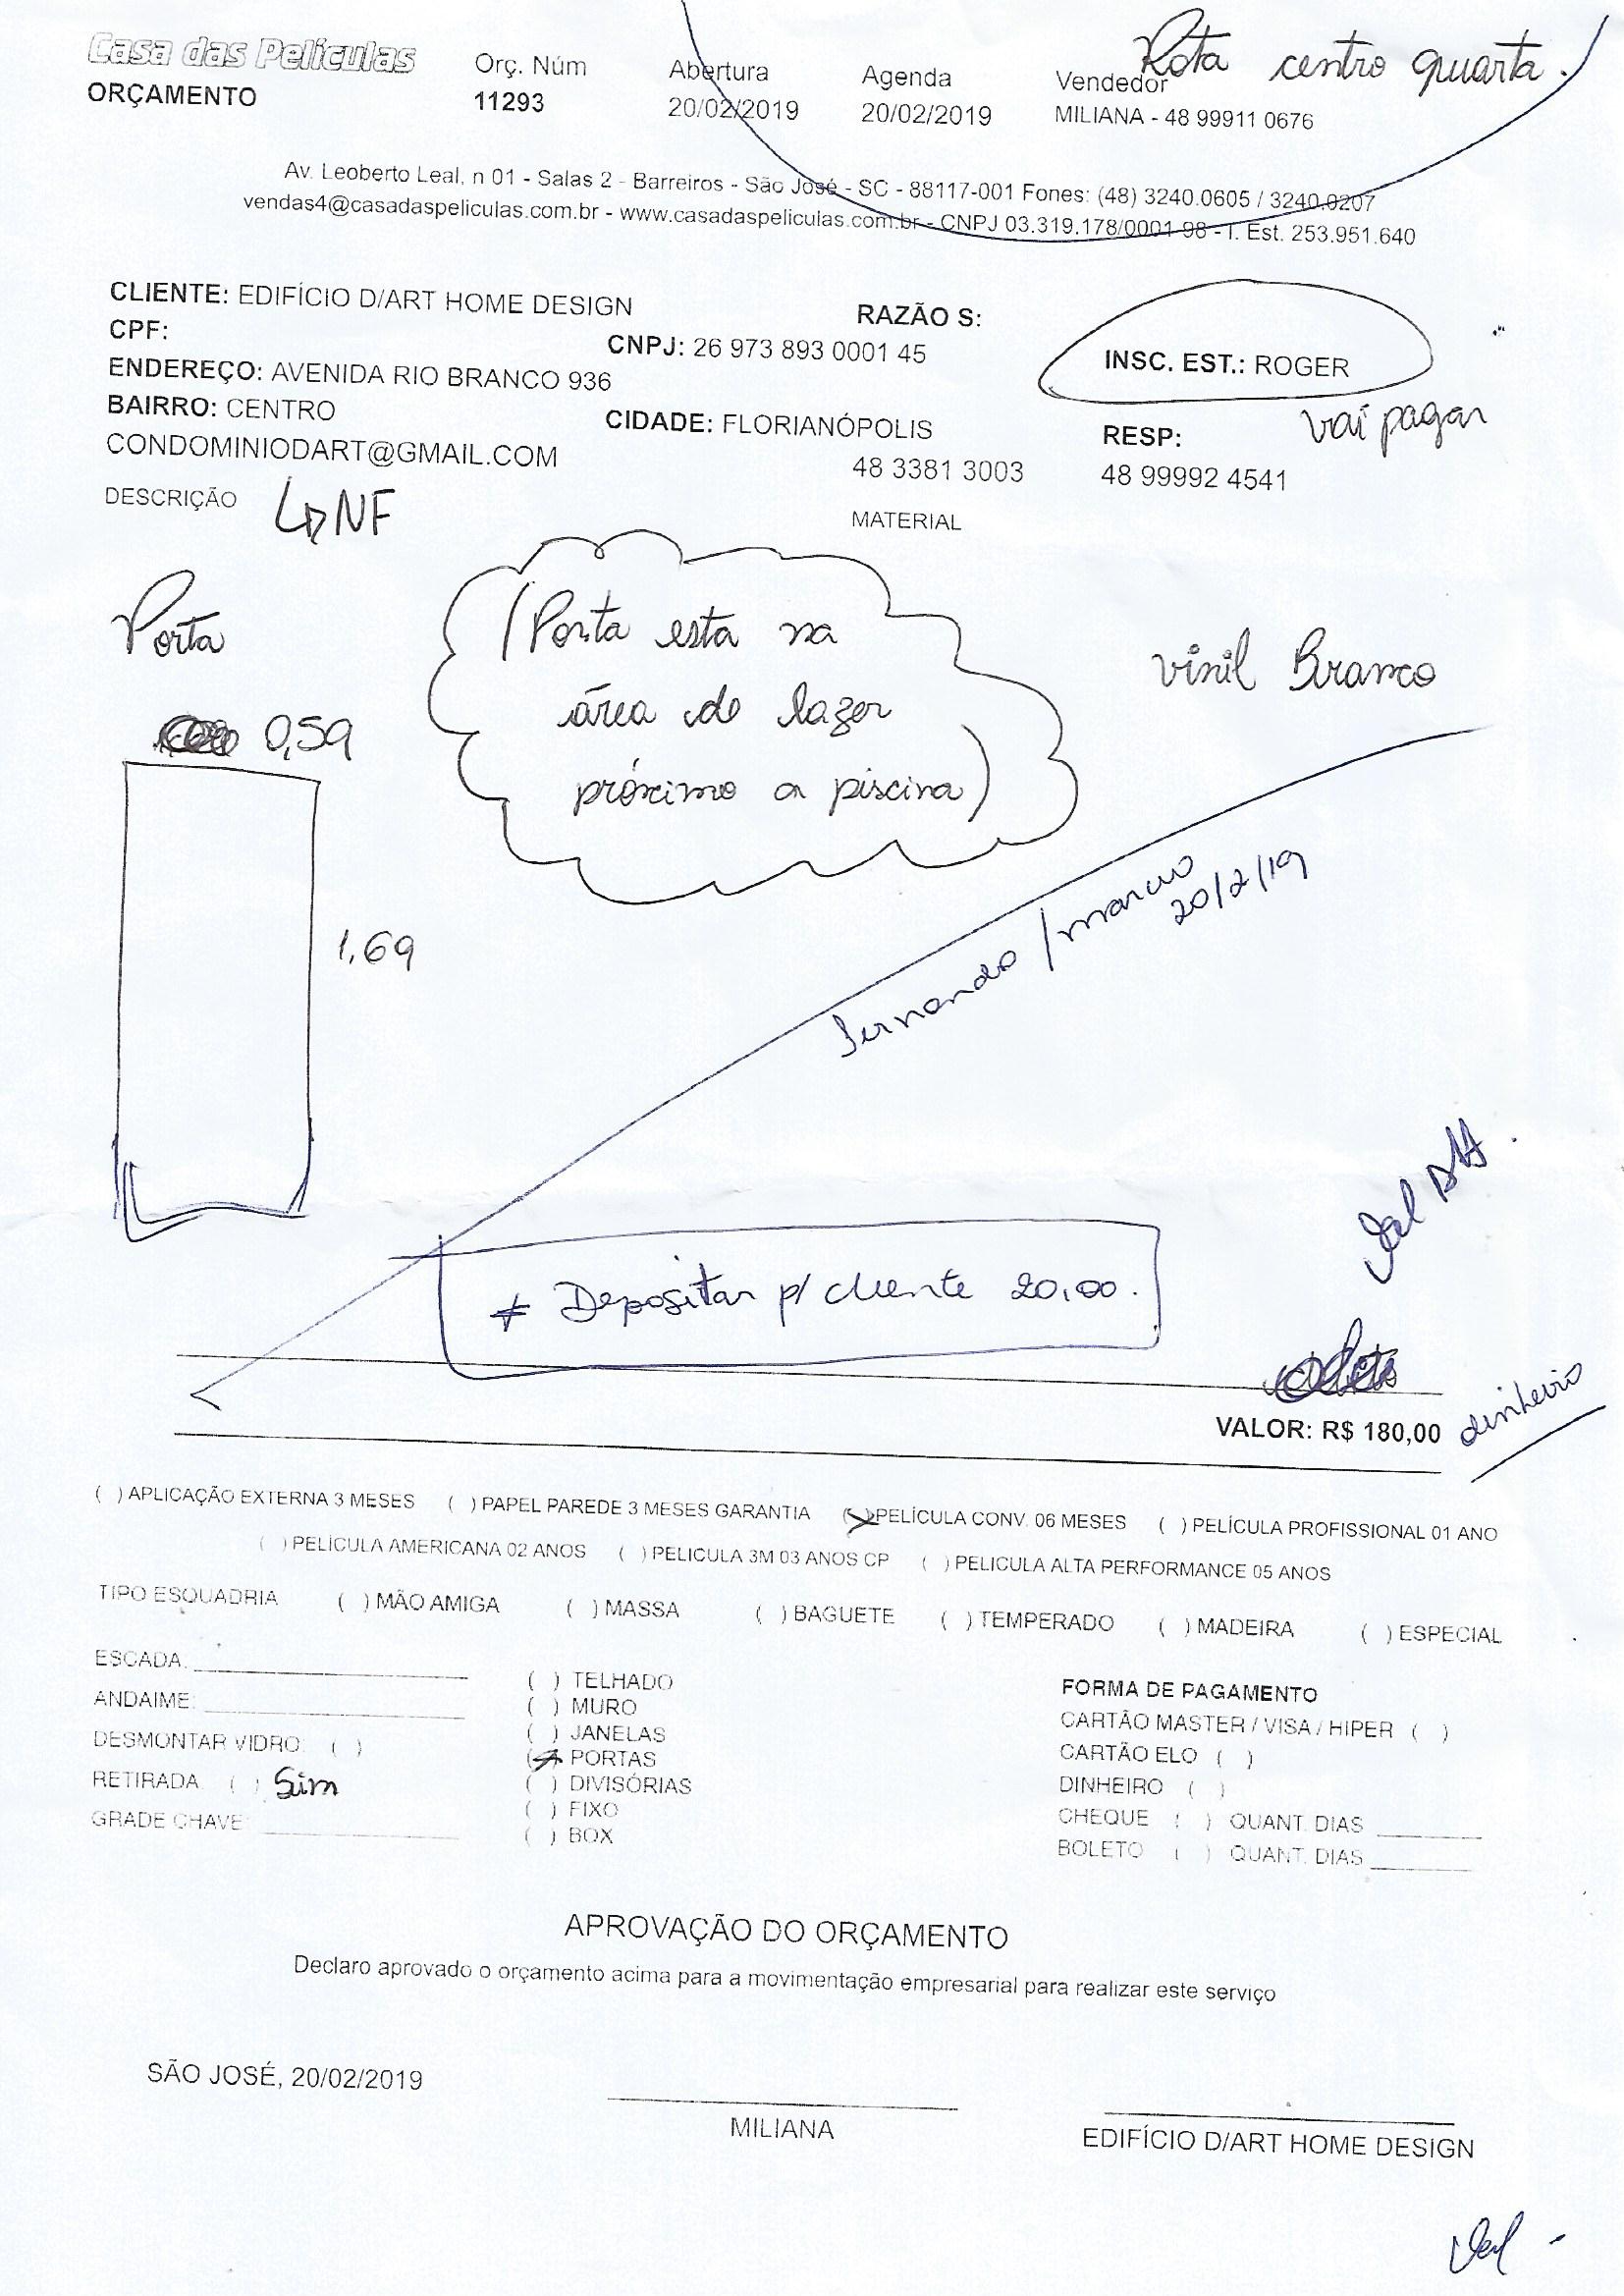 Rota centro quarta.
Casa das Películas
ORÇAMENTO
Orç. Núm
11293
Abertura
20/02/2019
Agenda
20/02/2019
Vendedor
MILIANA - 48 99911 0676
Av. Leoberto Leal, n 01 - Salas 2 - Barreiros - São José - SC - 88117-001 Fones: (48) 3240.0605 / 3240.0207
vendas4@casadaspeliculas.com.br - www.casadaspeliculas.com.br - CNPJ 03.319.178/0001-98 - I. Est. 253.951.640
CLIENTE: EDIFÍCIO D/ART HOME DESIGN
RAZÃO S:
CPF:
CNPJ: 26 973 893 0001 45
INSC. EST.: ROGER
ENDEREÇO: AVENIDA RIO BRANCO 936
BAIRRO: CENTRO
CIDADE: FLORIANÓPOLIS
RESP:
vai pagar
CONDOMINIODART@GMAIL.COM
48 3381 3003
48 99992 4541
DESCRIÇÃO
NF
MATERIAL
Porta
(Porta esta na
área de lazer
próximo a piscina)
vinil Branco
0,59
1,69
Fernando / marcio
20/2/19
* Depositar p/ cliente 20,00.
VALOR: R$ 180,00
dinheiro
( ) APLICAÇÃO EXTERNA 3 MESES ( ) PAPEL PAREDE 3 MESES GARANTIA (X) PELÍCULA CONV. 06 MESES ( ) PELÍCULA PROFISSIONAL 01 ANO
( ) PELÍCULA AMERICANA 02 ANOS ( ) PELICULA 3M 03 ANOS CP ( ) PELICULA ALTA PERFORMANCE 05 ANOS
TIPO ESQUADRIA ( ) MÃO AMIGA ( ) MASSA ( ) BAGUETE ( ) TEMPERADO ( ) MADEIRA ( ) ESPECIAL
ESCADA:
ANDAIME:
DESMONTAR VIDRO: ( )
RETIRADA ( ) Sim
GRADE CHAVE:
( ) TELHADO
( ) MURO
( ) JANELAS
(X) PORTAS
( ) DIVISÓRIAS
( ) FIXO
( ) BOX
FORMA DE PAGAMENTO
CARTÃO MASTER / VISA / HIPER ( )
CARTÃO ELO ( )
DINHEIRO ( )
CHEQUE ( ) QUANT. DIAS
BOLETO ( ) QUANT. DIAS
APROVAÇÃO DO ORÇAMENTO
Declaro aprovado o orçamento acima para a movimentação empresarial para realizar este serviço
SÃO JOSÉ, 20/02/2019
MILIANA
EDIFÍCIO D/ART HOME DESIGN